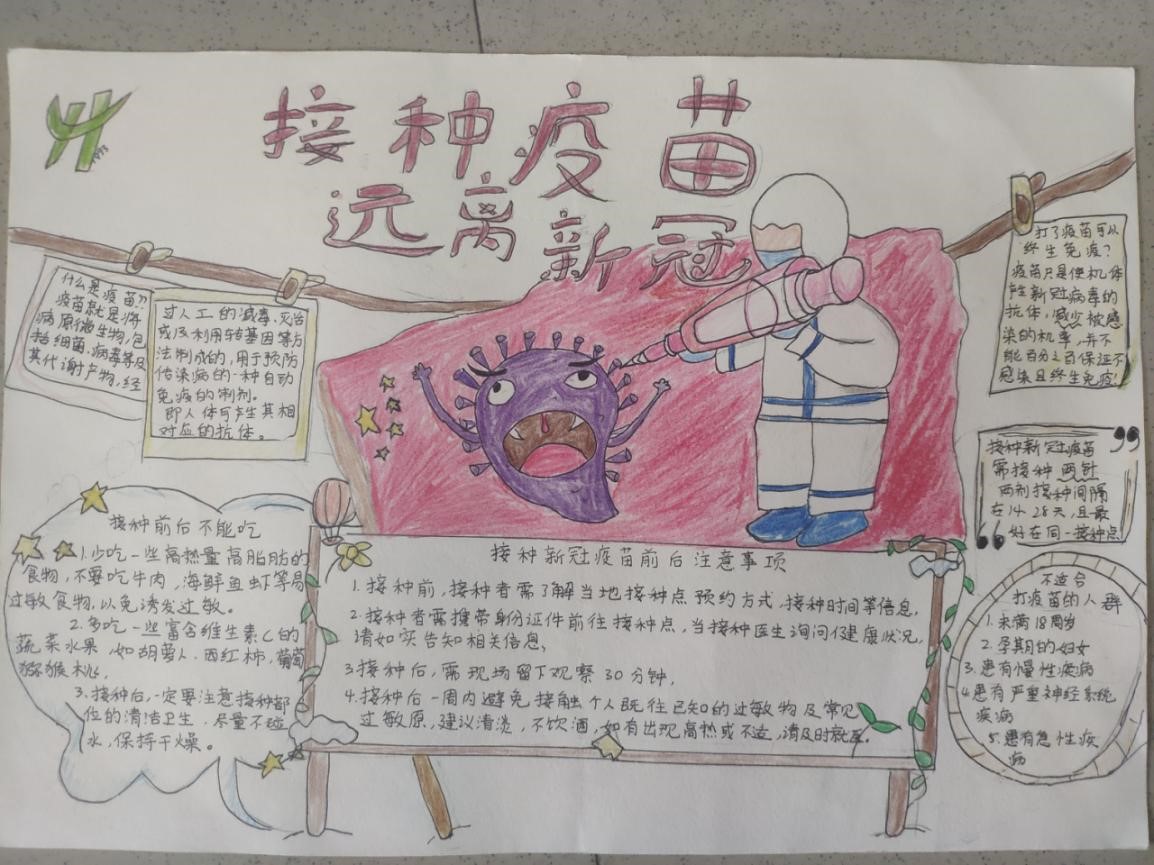 1993
接种疫苗
远离新冠
什么是疫苗?
疫苗就是将
病原微生物,包
括细菌、病毒等及
其代谢产物,经
过人工的减毒、灭活
或及利用转基因等方
法制成的,用于预防
传染病的一种自动
免疫的制剂。
即人体可产生其相
对应的抗体。
打了疫苗可以
终生免疫?
疫苗只是使机体
产生新冠病毒的
抗体,减少被感
染的机率,并不
能百分之百保证不
感染且终生免疫!
接种新冠疫苗
需接种两针
两剂接种间隔
在14-28天,且最
好在同一接种点
接种前后不能吃
1.少吃一些高热量高脂肪的
食物,不要吃牛肉,海鲜鱼虾等易
过敏食物,以免诱发过敏。
2.多吃一些富含维生素C的
蔬菜水果,如胡萝卜、西红柿,葡萄
猕猴桃,
3.接种后,一定要注意接种部
位的清洁卫生,尽量不碰
水,保持干燥。
接种新冠疫苗前后注意事项
1.接种前,接种者需了解当地接种点预约方式,接种时间等信息,
2.接种者需携带身份证件前往接种点,当接种医生询问健康状况,
请如实告知相关信息,
3.接种后,需现场留下观察30分钟,
4.接种后一周内避免接触个人既往已知的过敏物及常见
过敏原,建议清淡,不饮酒,如有出现高热或不适,请及时就医。
不适合
打疫苗的人群
1.未满18周岁
2.孕期的妇女
3.患有慢性疾病
4.患有严重神经系统
疾病
5.患有急性疾
病